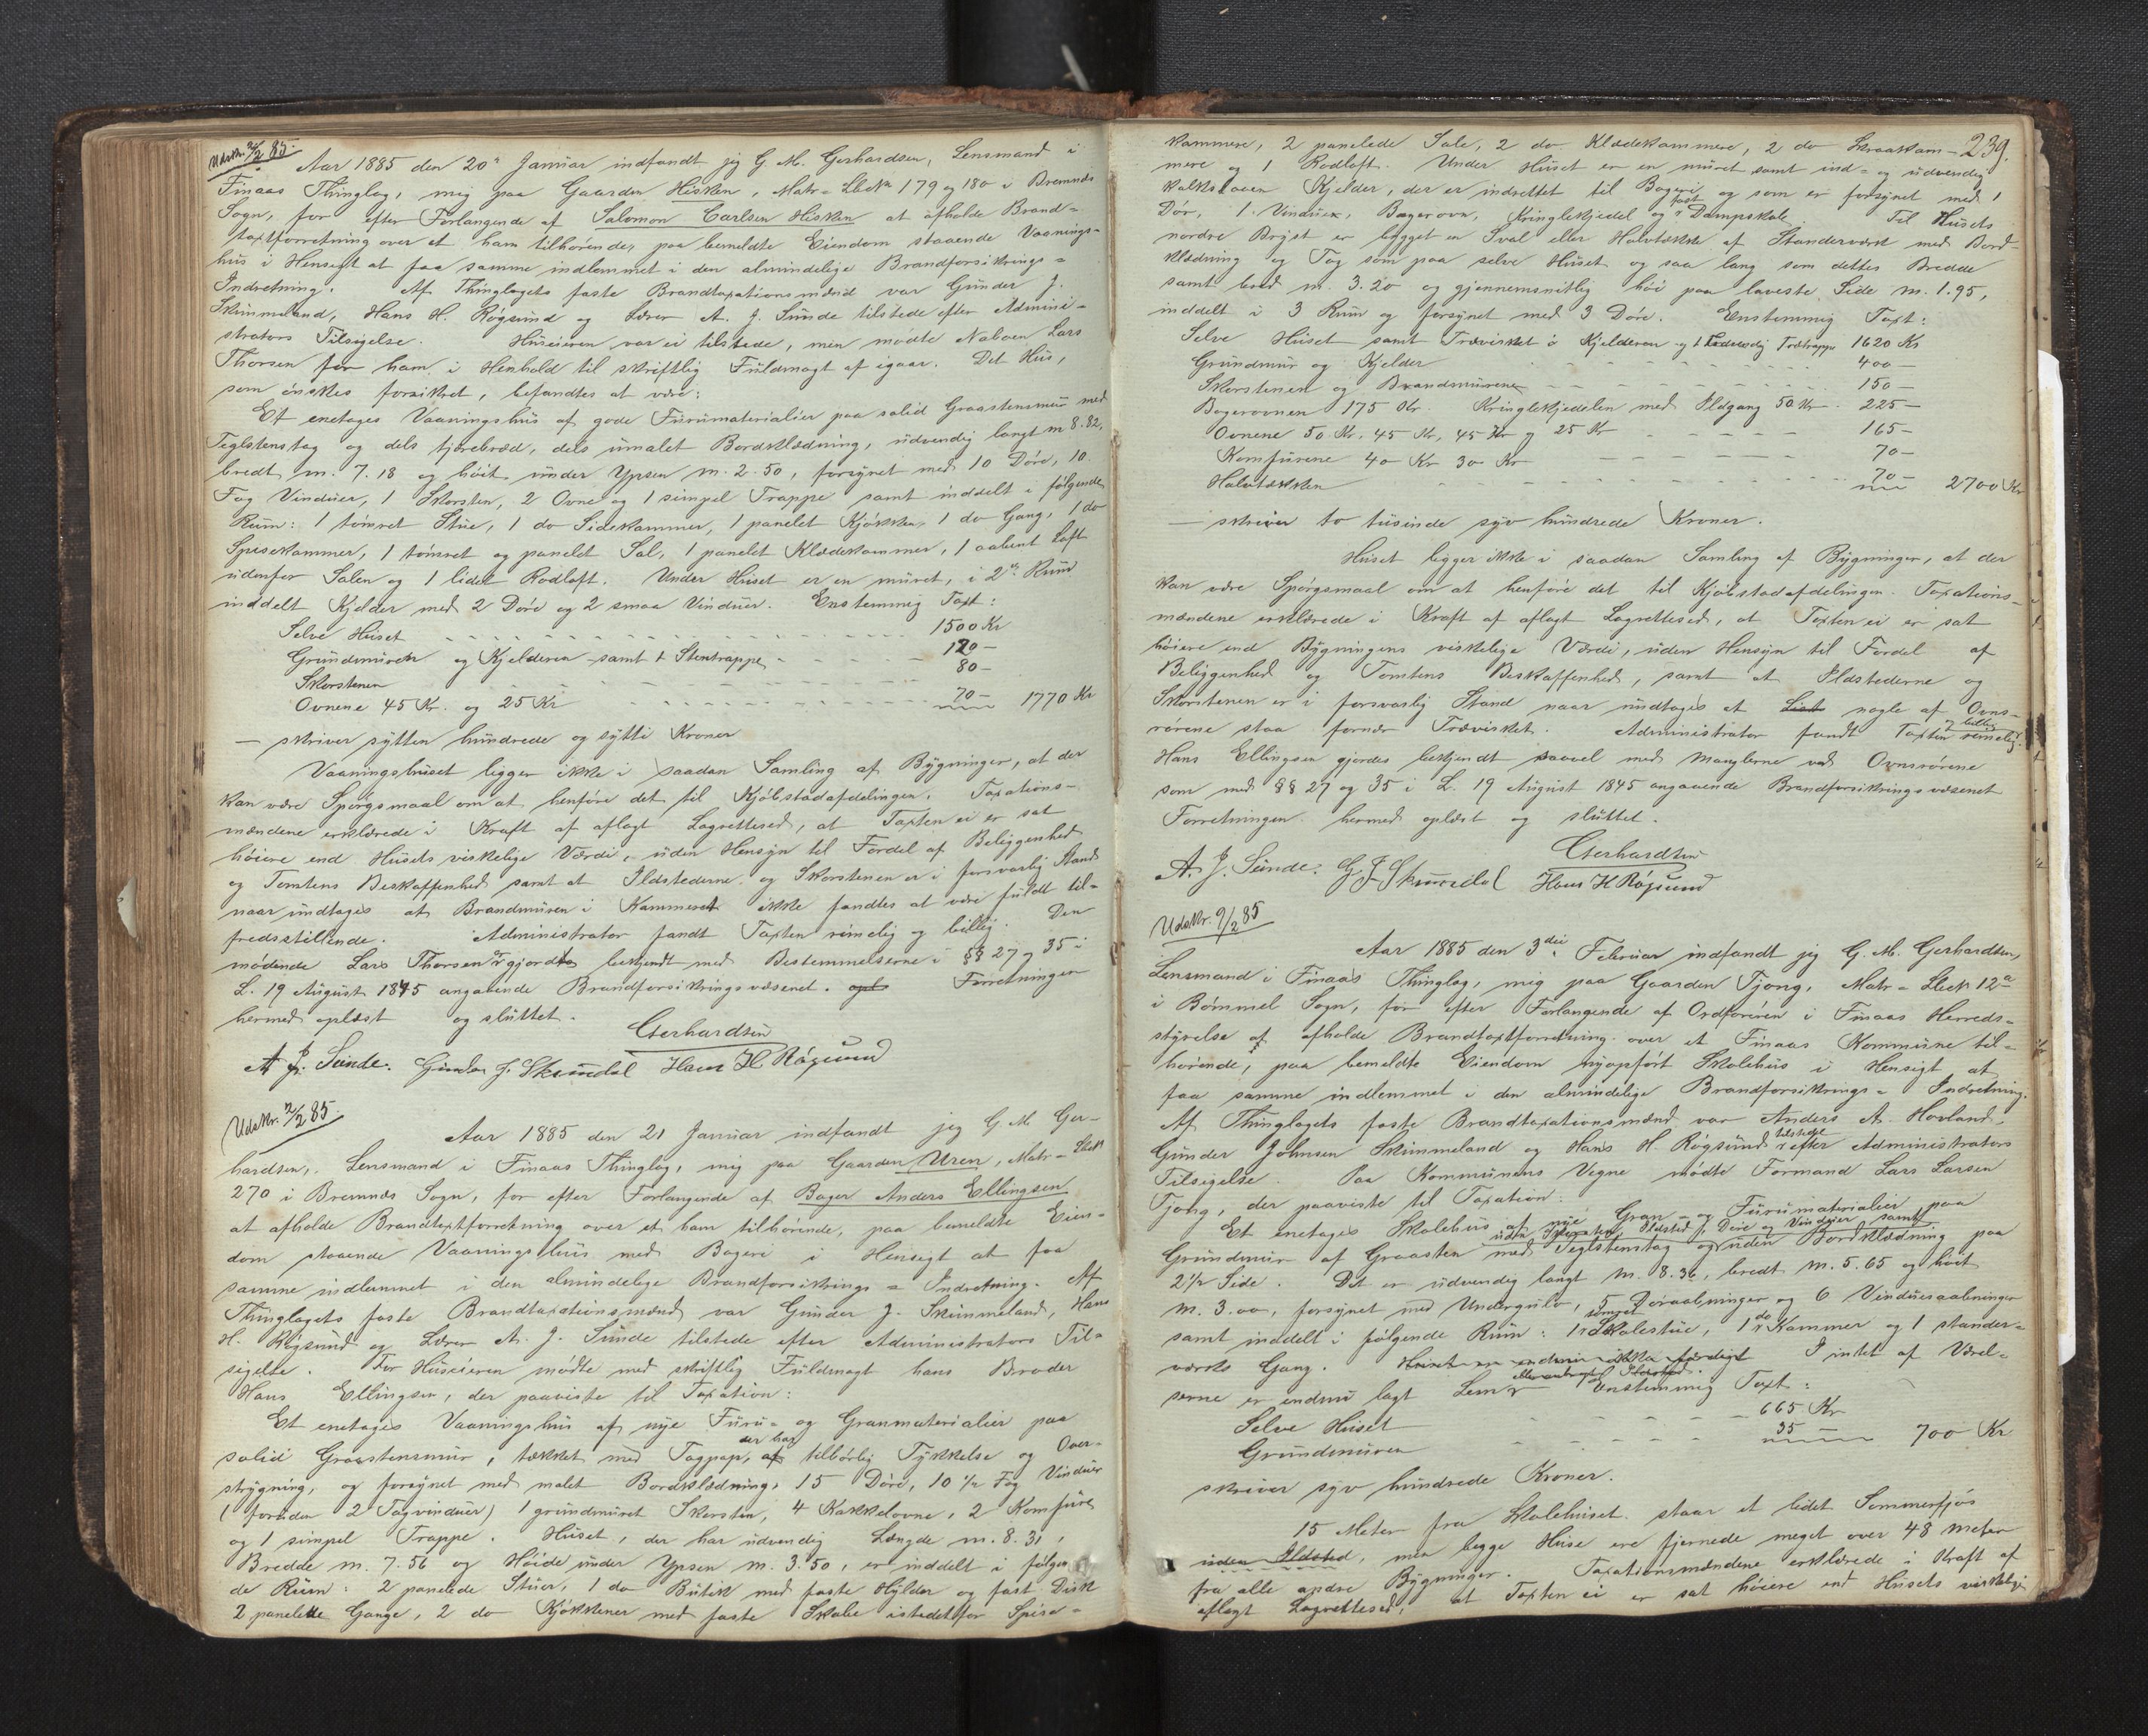 Udskr. 2/2 85.
Aar 1885 den 20de Januar indfandt jeg G. M. Gerhardsen, Lensmand i
Finaas Thinglag, mig paa Gaarden Hisken, Matr-Løbeno 179 og 180 i Bremnæs
Sogn, for efter Forlangende af Salomon Carlsen Hisken at afholde Brand-
taxtforretning over et ham tilhørende, paa bemeldte Eiendom staaende Vaanings-
hus i Hensigt at faa samme indlemmet i den almindelige Brandforsikrings-
Indretning. Af Thinglagets faste Brandtaxationsmænd var Gunder J.
Skimmeland, Hans H. Røgsund og Lærer A. J. Sunde tilstede efter Admini-
strators Tilsigelse. Huseieren var ei tilstede, men mødte Naboen Lars
Thorsen for ham i Henhold til skriftlig Fuldmagt af igaar. Det Hus,
som ønskes forsikret, befandtes at være:
Et enetages Vaaningshus af gode Furumaterialier paa solid Graastensmur med
Teglstenstag og dels tjærebræd, dels umalet Bordklædning, udvendig langt m 8.82,
bredt m. 7.18 og høit under Ypsen m. 2.50, forsynet med 10 Døre, 10
Fag Vinduer, 1 Skorsten, 2 Ovne og 1 simpel Trappe samt inddelt i følgende
Rum: 1 tømret Stue, 1 do Sidekammer, 1 panelet Kjøkken, 1 do Gang, 1 do
Spisekammer, 1 tømret og panelet Sal, 1 panelet Klædekammer, 1 aabent Loft
udenfor Salen og 1 lidet Rodloft. Under Huset er en muret, i 2de Rum
inddelt Kjelder med 2 Døre og 2 smaa Vinduer. Enstemmig Taxt:
Selve Huset 1500 Kr
Grundmuren og Kjelderen samt 1 Stentrappe 120 -
Skorstenen 80 -
Ovnene 45 Kr. og 25 Kr 70 - 1770 Kr
- skriver sytten hundrede og sytti Kroner
Vaaningshuset ligger ikke i saadan Samling af Bygninger, at der
kan være Spørgsmaal om at henføre det til Kjøbstadafdelingen. Taxations-
mændene erklærede i Kraft af aflagt Lagrettesed, at Taxten ei er sat
høiere end Husets virkelige Værdi, uden Hensyn til Fordel af Beliggenhed
og Tomtens Beskaffenhed samt at Ildstederne og Skorstenen er i forsvarlig Stand
naar undtages at Brandmuren i Kammeret ikke fandtes at være fuldt til-
fredsstillende. Administrator fandt Taxten rimelig og billig. Den
mødende Lars Thorsen gjordes bekjendt med Bestemmelserne i §§ 27 og 35 i
L. 19 August 1845 angaaende Brandforsikringsvæsenet. Forretningen
hermed oplæst og sluttet.
Gerhardsen
A. J. Sunde. Gunder J. Skimmelal Hans H Røgsund
Udskr. 2/2 85.
Aar 1885 den 21 Januar indfandt jeg G. M. Ger-
hardsen, Lensmand i Finaas Thinglag, mig paa Gaarden Uren, Matr-Løbeno
270 i Bremnæs Sogn, for efter Forlangende af Bager Anders Ellingsen
at afholde Brandtaxtforretning over et ham tilhørende, paa bemeldte Eien-
dom staaende Vaaningshus med Bageri i Hensigt at faa
samme indlemmet i den almindelige Brandforsikrings-Indretning. Af
Thinglagets faste Brandtaxationsmænd var Gunder J. Skimmeland, Hans
H. Røgsund og Lærer A. J. Sunde tilstede efter Administrators Til-
sigelse. For Huseieren mødte med skriftlig Fuldmagt hans Broder
Hans Ellingsen, der paaviste til Taxation:
Et enetages Vaaningshus af nye Furu- og Granmaterialier paa
solid Graastensmur, tækket med Tagpap, der har tilbørlig Tykkelse og Over-
strygning, og forsynet med malet Bordklædning, 15 Døre, 10 1/2 Fag Vinduer
(foruden 2 Tagvinduer) 1 grundmuret Skorsten, 4 Kakkelovne, 2 Komfure
og 1 simpel Trappe. Huset, der har udvendig Længde m. 8.31,
Bredde m. 7.56 og Høide under Ypsen m. 3.50, er inddelt i følgen-
de Rum: 2 panelede Stuer, 1 do Butik med faste Hylder og fast Disk
2 panelede Gange, 2 do Kjøkkener med faste Skabe istedetfor Spise-
239.
kammere, 2 panelede Sale, 2 do Klædekammere, 2 do Skraakam-
mere og 1 Rodloft. Under Huset er en muret samt ind- og udvendig
kalkslaaen Kjelder, der er indrettet til Bageri og som er forsynet med 1
Dør, 1 Vindue, Bagerovn, Kringlekjedel og fast Dampskab. Til Husets
nordre Bryst er bygget en Sval eller Halvtække af Standerværk med Bord-
klædning og Tag som paa selve Huset og saa lang som dettes Bredde
samt bred m. 3.20 og gjennemsnitlig høi paa laveste Side m. 1.95,
inddelt i 3 Rum og forsynet med 3 Døre. Enstemmig Taxt:
Selve Huset samt Trævirket i Kjelderen og 1 Udvendig Trætrappe 1620 Kr
Grundmur og Kjelder 400 -
Skorstenen og Brandmurene 150 -
Bagerovnen 175 Kr. Kringlekjedelen med Ildgang 50 Kr 225 -
Ovnene 50 Kr, 45 Kr, 45 Kr og 25 Kr 165 -
Komfurene 40 Kr 30 Kr 70 -
Halvtækken 70 - 2700 Kr
- skriver to tusinde syv hundrede Kroner.
Huset ligger ikke i saadan Samling af Bygninger, at der
kan være Spørgsmaal om at henføre det til Kjøbstadafdelingen. Taxations-
mændene erklærede i Kraft af aflagt Lagrettesed, at Taxten ei er sat
høiere end Bygningens virkelige Værdi, uden Hensyn til Fordel af
Beliggenhed og Tomtens Beskaffenhed, samt at Ildstederne og
Skorstenen er i forsvarlig Stand naar undtages at nogle af Ovns-
rørene staa fornær Trævirket. Administrator fandt Taxten rimelig og billig.
Hans Ellingsen gjordes bekjendt saavel med Manglerne ved Ovnsrørene
som med §§ 27 og 35 i L. 19 August 1845 angaaende Brandforsikringsvæsenet
Forretningen hermed oplæst og sluttet.
Gerhardsen
A. J. Sunde. G J Skimmelal Hans H Røgsund
Udskr. 9/2 85
Aar 1885 den 3die Februar indfandt jeg G. M. Gerhardsen,
Lensmand i Finaas Thinglag, mig paa Gaarden Tjong, Matr-Løbeno 12a
i Bømmel Sogn, for efter Forlangende af Ordføreren i Finaas Herreds-
styrelse at afholde Brandtaxtforretning over et Finaas Kommune til-
hørende, paa bemeldte Eiendom nyopført Skolehus i Hensigt at
faa samme indlemmet i den almindelige Brandforsikrings-Indretning.
Af Thinglagets faste Brandtaxationsmænd var Anders A. Hovland,
Gunder Johnsen Skimmeland og Hans H. Røgsund tilstede efter Administrators
Tilsigelse. Paa Kommunens Vegne mødte Formand Lars Larsen
Tjong, der paaviste til Taxation:
Et enetages Skolehus af nye Gran- og Furumaterialier paa
Grundmur af Graasten med Teglstenstag og uden Skorsten, Ildsted, Døre og Vinduer samt uden Bordklædning paa
2 1/2 Side. Det er udvendig langt m. 8.36, bredt m. 5.65 og høit
m. 3.00, forsynet med Undergulv, 5 Døraabninger og 6 Vinduesaabninger
samt inddelt i følgende Rum: 1 tømret Skolestue, 1 do Kammer og 1 stander-
værks Gang. Huset er endnu ikke færdigt I intet af Værel-
serne er endnu lagt Lem Enstemmig Taxt:
Selve Huset 665 Kr
Grundmuren 35 - 700 Kr
skriver syv hundrede Kroner.
15 Meter fra Skolehuset staar et lidet Sommerfjøs
uden Ildsted, men begge Huse ere fjernede meget over 48 Meter
fra alle andre Bygninger. Taxationsmændene erklærede i Kraft af
aflagt Lagrettesed, at Taxten ei er sat høiere end Husets virkelige